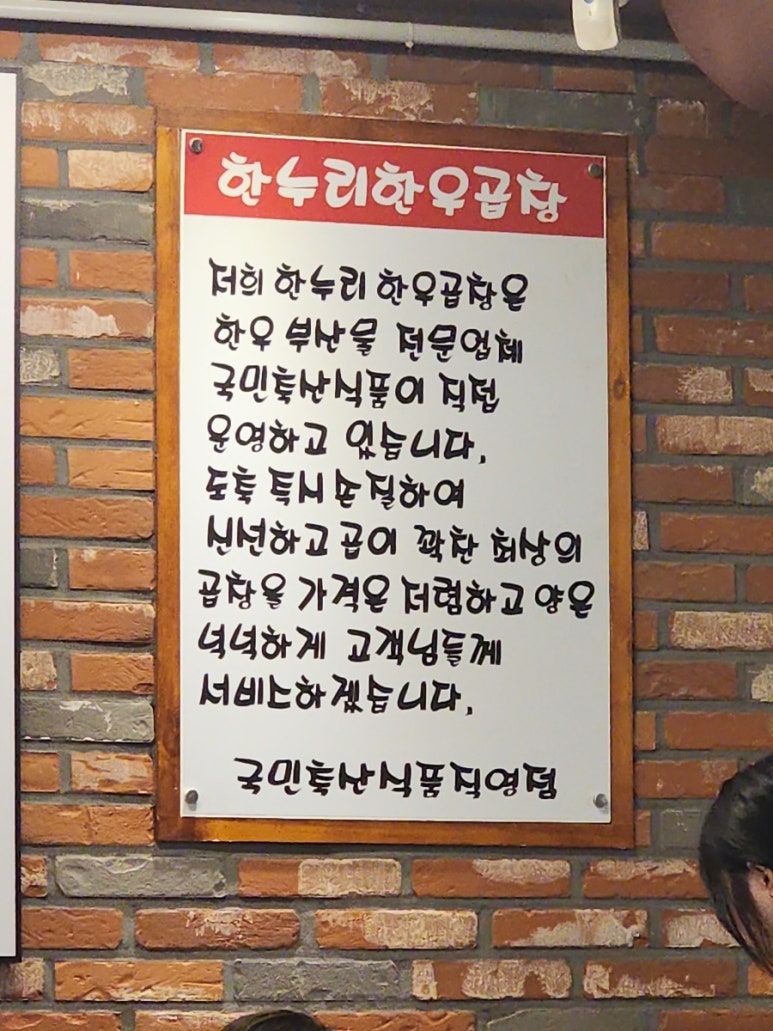 한누리한우곱창
저희 한누리 한우곱창은
한우 부산물 전문업체
국민축산식품이 직접
운영하고 있습니다.
도축 즉시 손질하여
신선하고 곱이 꽉찬 최상의
곱창을 가격은 저렴하고 양은
넉넉하게 고객님들께
서비스하겠습니다.
국민축산식품직영점